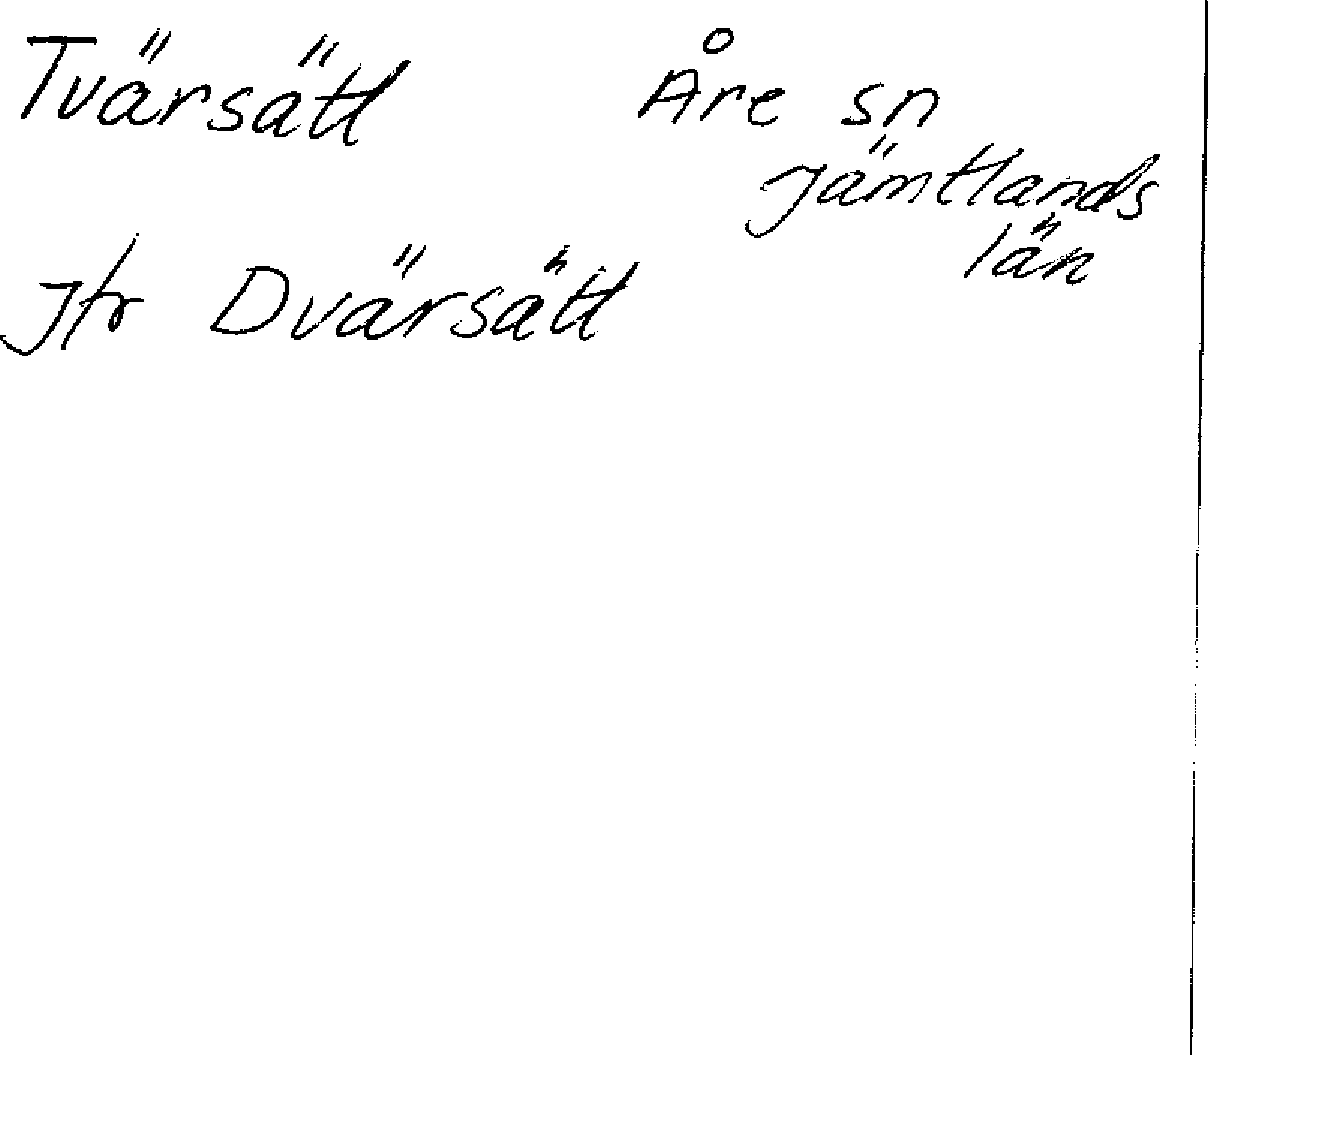 Tvärsätt Åre sn
Jämtlands
län
Jfr Dvärsätt